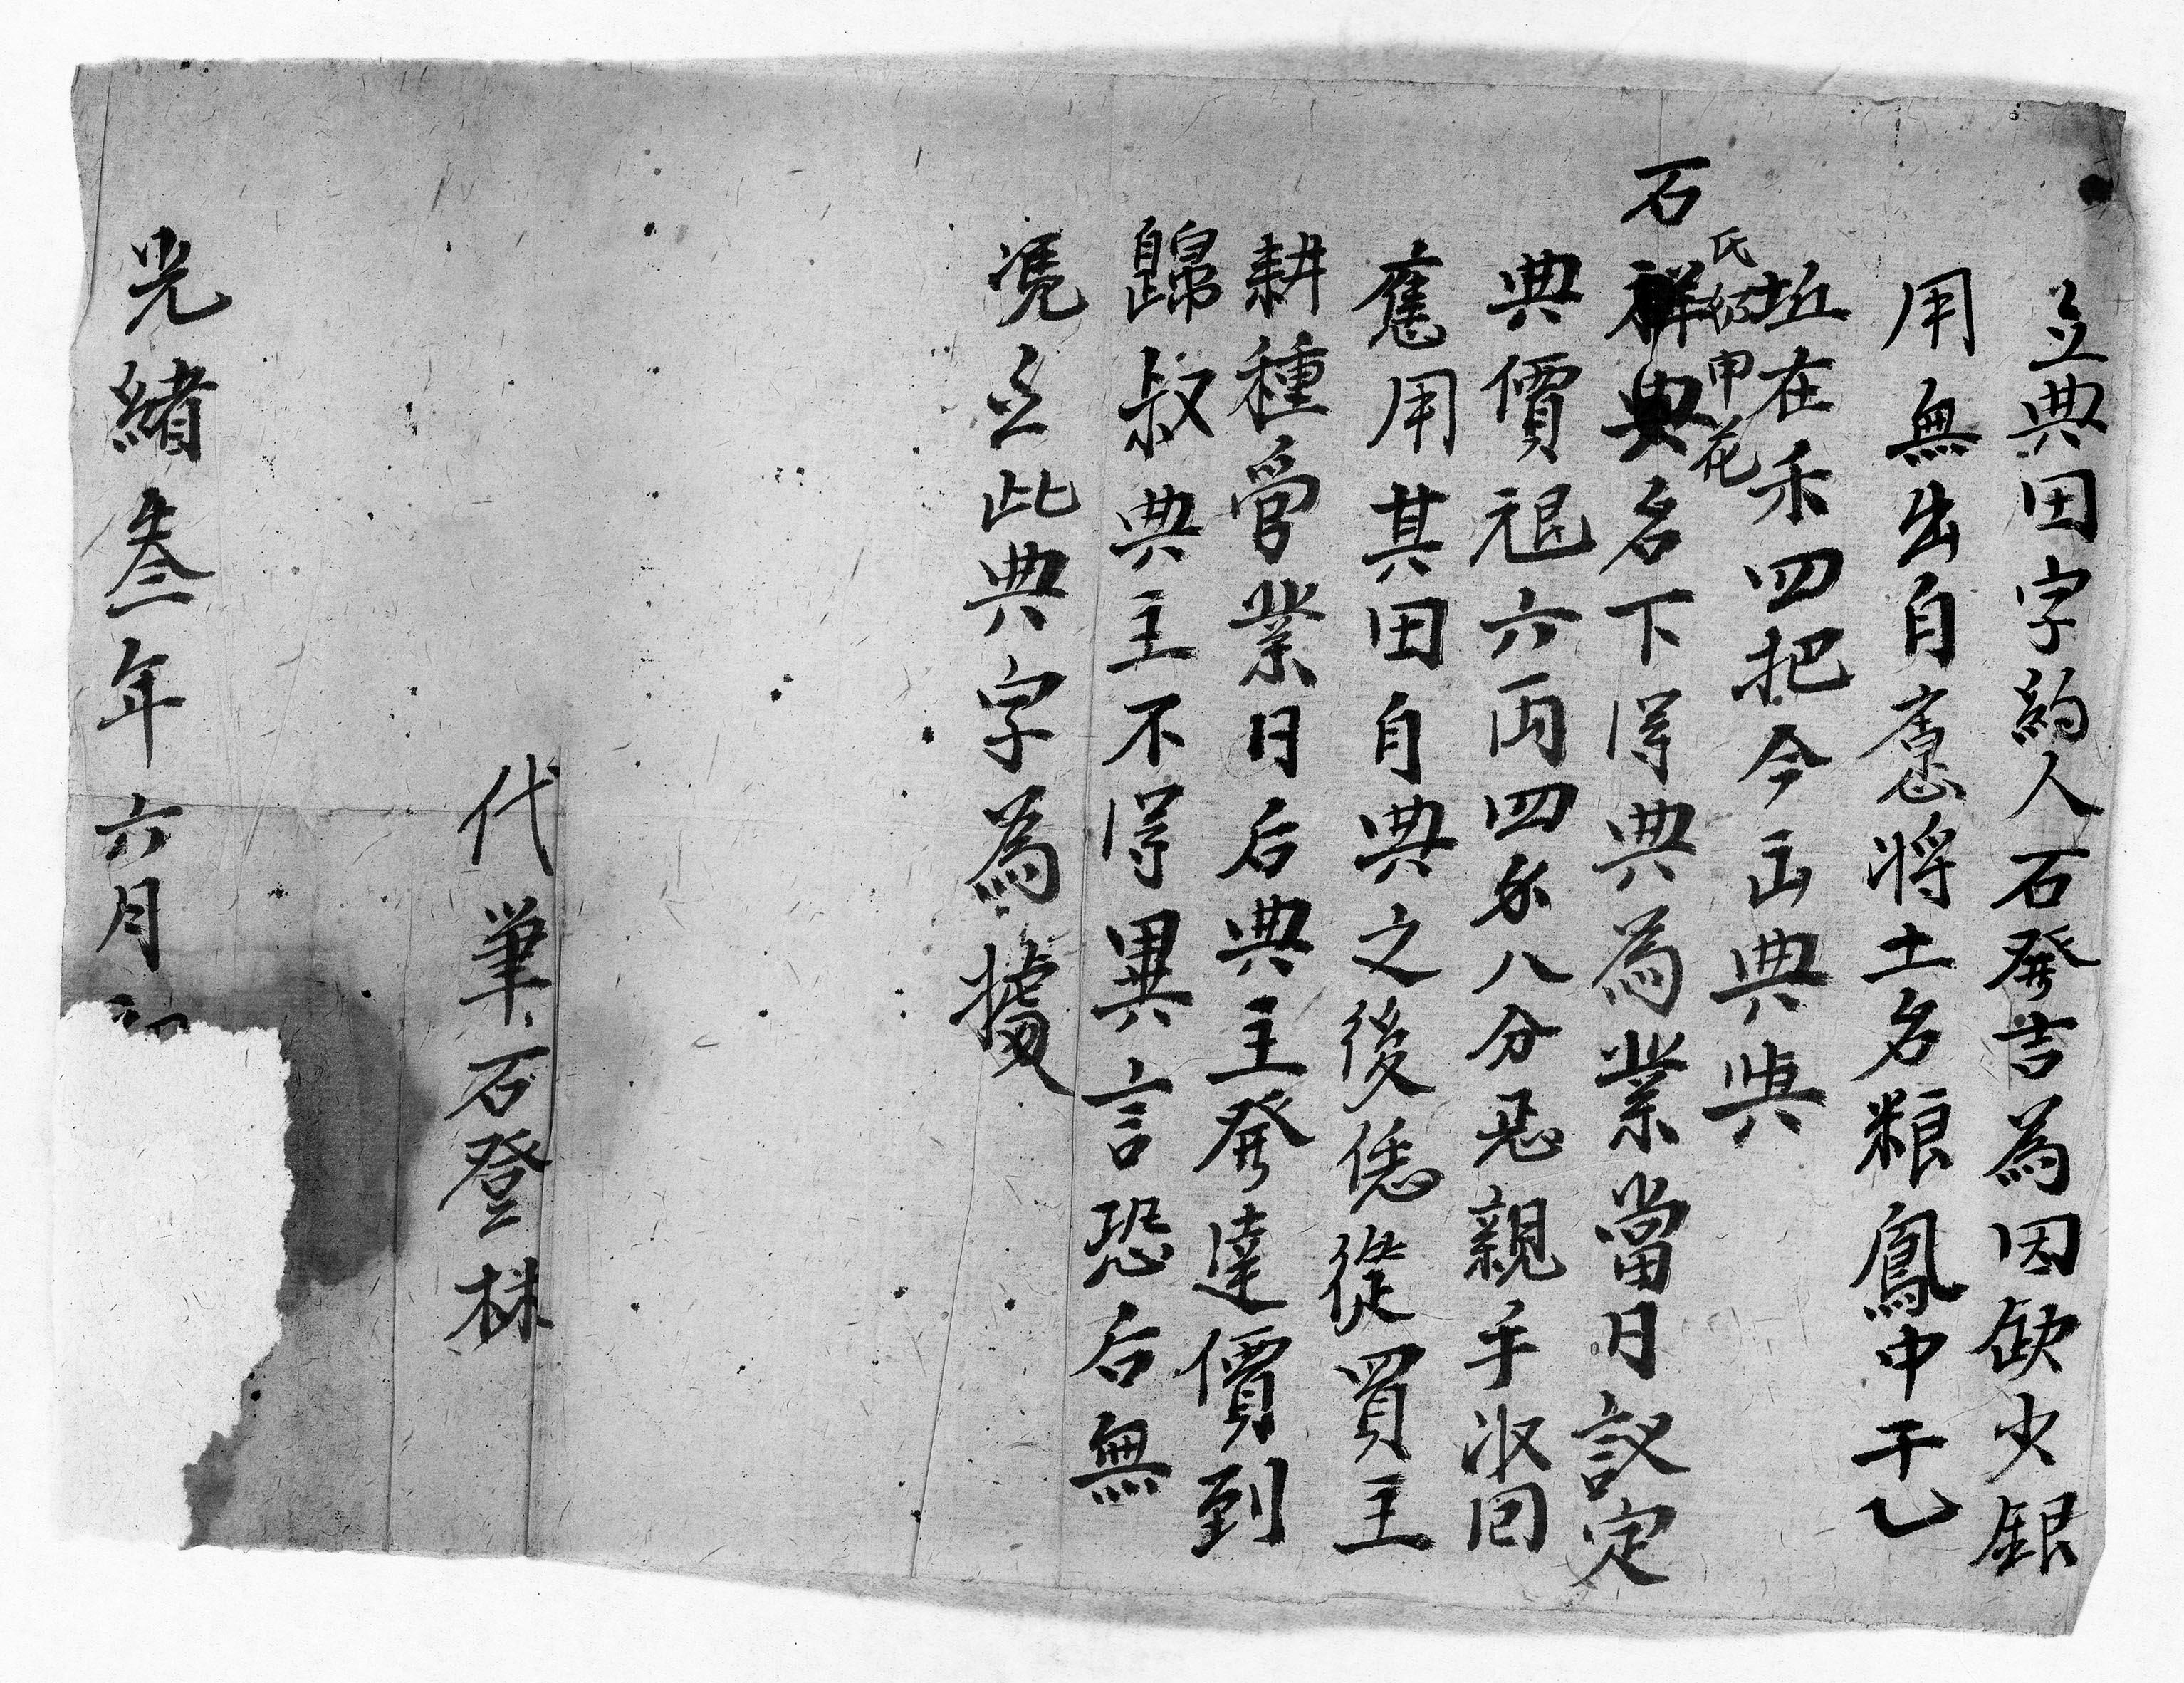 立典田字約人石發吉為因缺少銀
用無出自愿將土名粮鳳中干乙
坵在禾四把今出典與
石氏 申花
名下得典為業當日議定
典價艮六両四錢八分足親手収回
應用其田自典之後恁從買主
耕種管業日后典主發達價到
歸叔典主不得異言恐后無
凭立此典字為據
代筆石登林
光緒叁年六月初